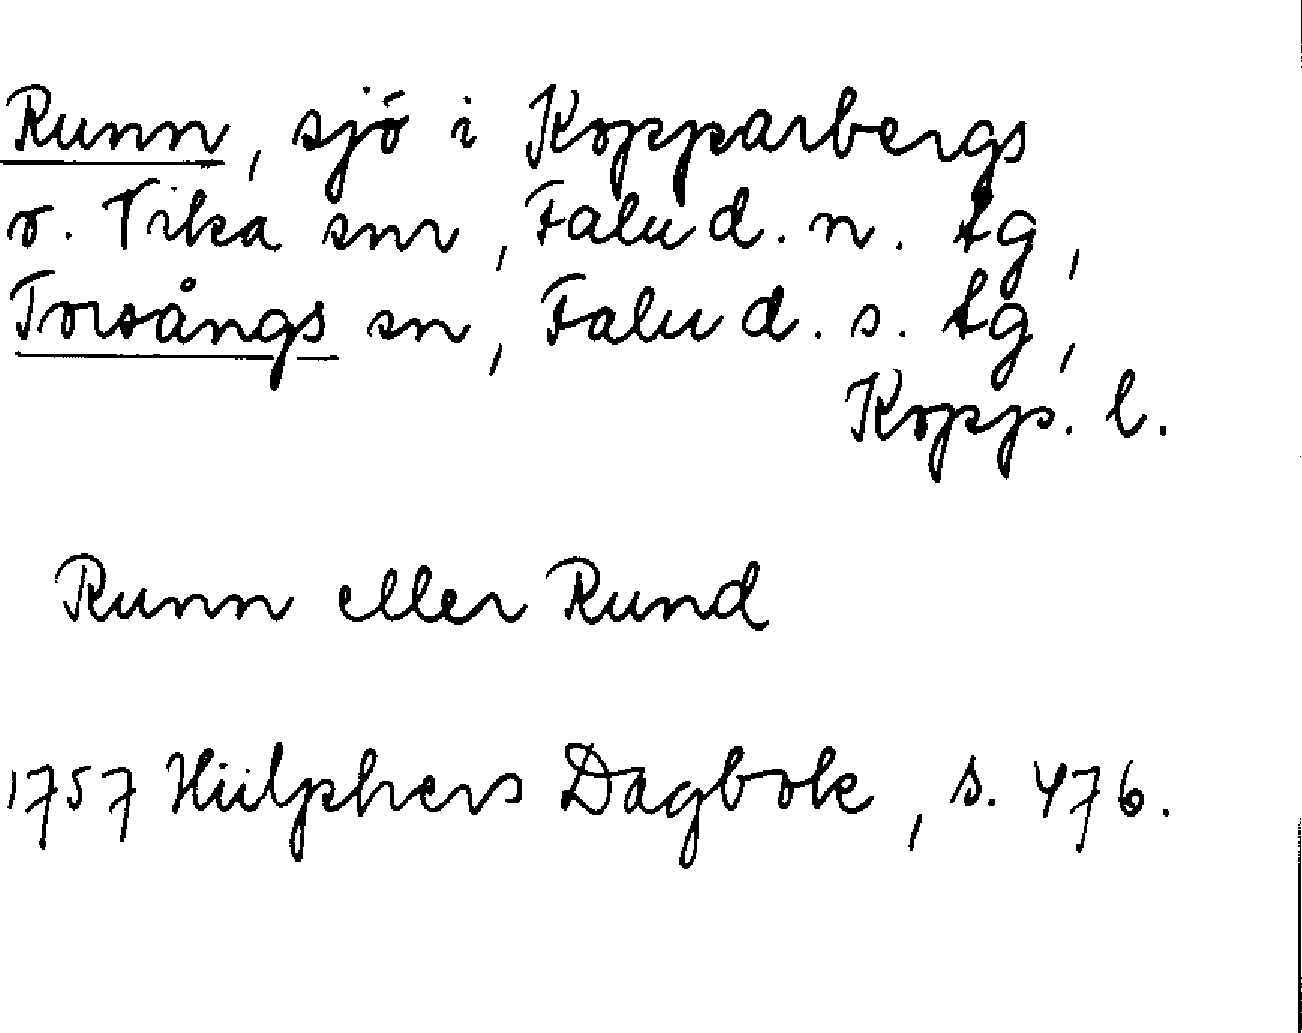 Runn, sjö i Kopparbergs
o. Vika snr, Falu d. n. tg,
Torsångs sn, Falu d. s. tg,
Kopp. l.
Runn eller Rund
1757 Hülphers Dagbok, s. 476.